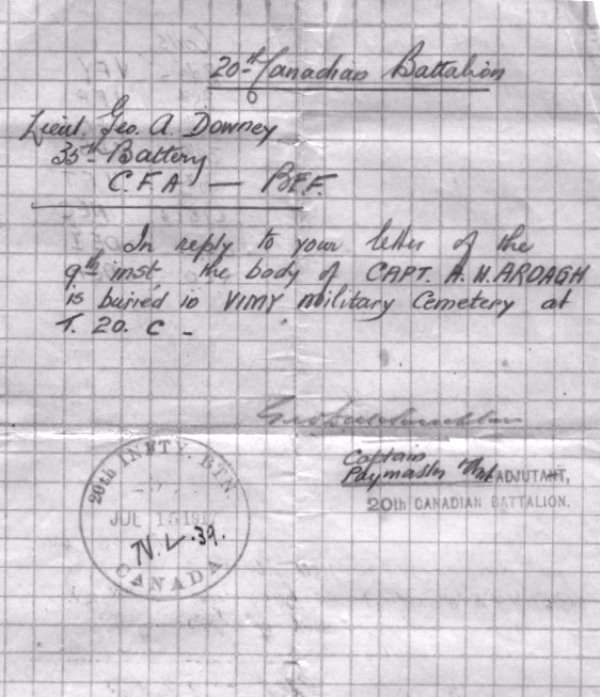 20th Canadian Battalion
Lieut. Geo. A. Downey
35th Battery
C.F.A — B.E.F.
In reply to your letter of the
9th inst, the body of CAPT. A. H. ARDAGH
is buried in VIMY military Cemetery at
T. 20. C -
Captain
Paymaster
ADJUTANT,
20th CANADIAN BATTALION.
20th INFTY. BTN.
JUL 15 19
N.L.39.
CANADA